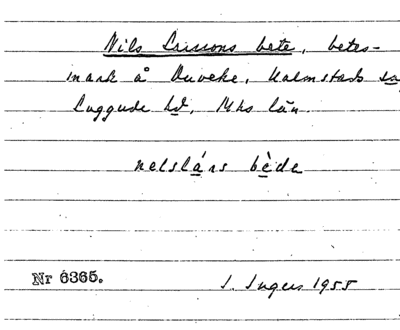 Nils Larssons bete, betes-
mark å Duveke, Kalmstads sn,
Luggude hd, Mhs län.
nelslárs bède
Nr 6365.
I. Ingers 1955